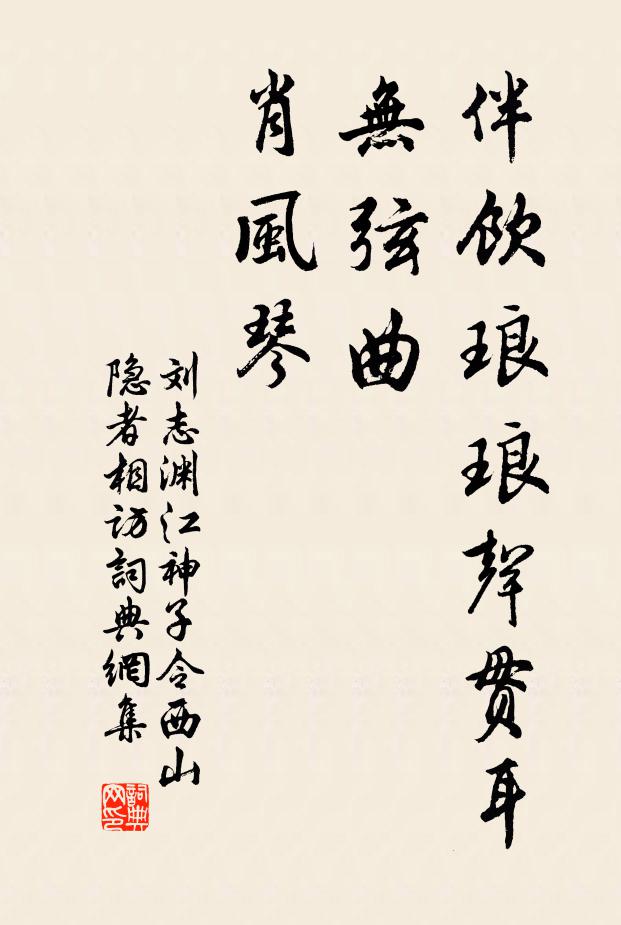 伴飲琅琅聲貫耳
無弦曲
肖風琴
刘志渊江神子令西山
隐者相访詞典網集
詞典
网印